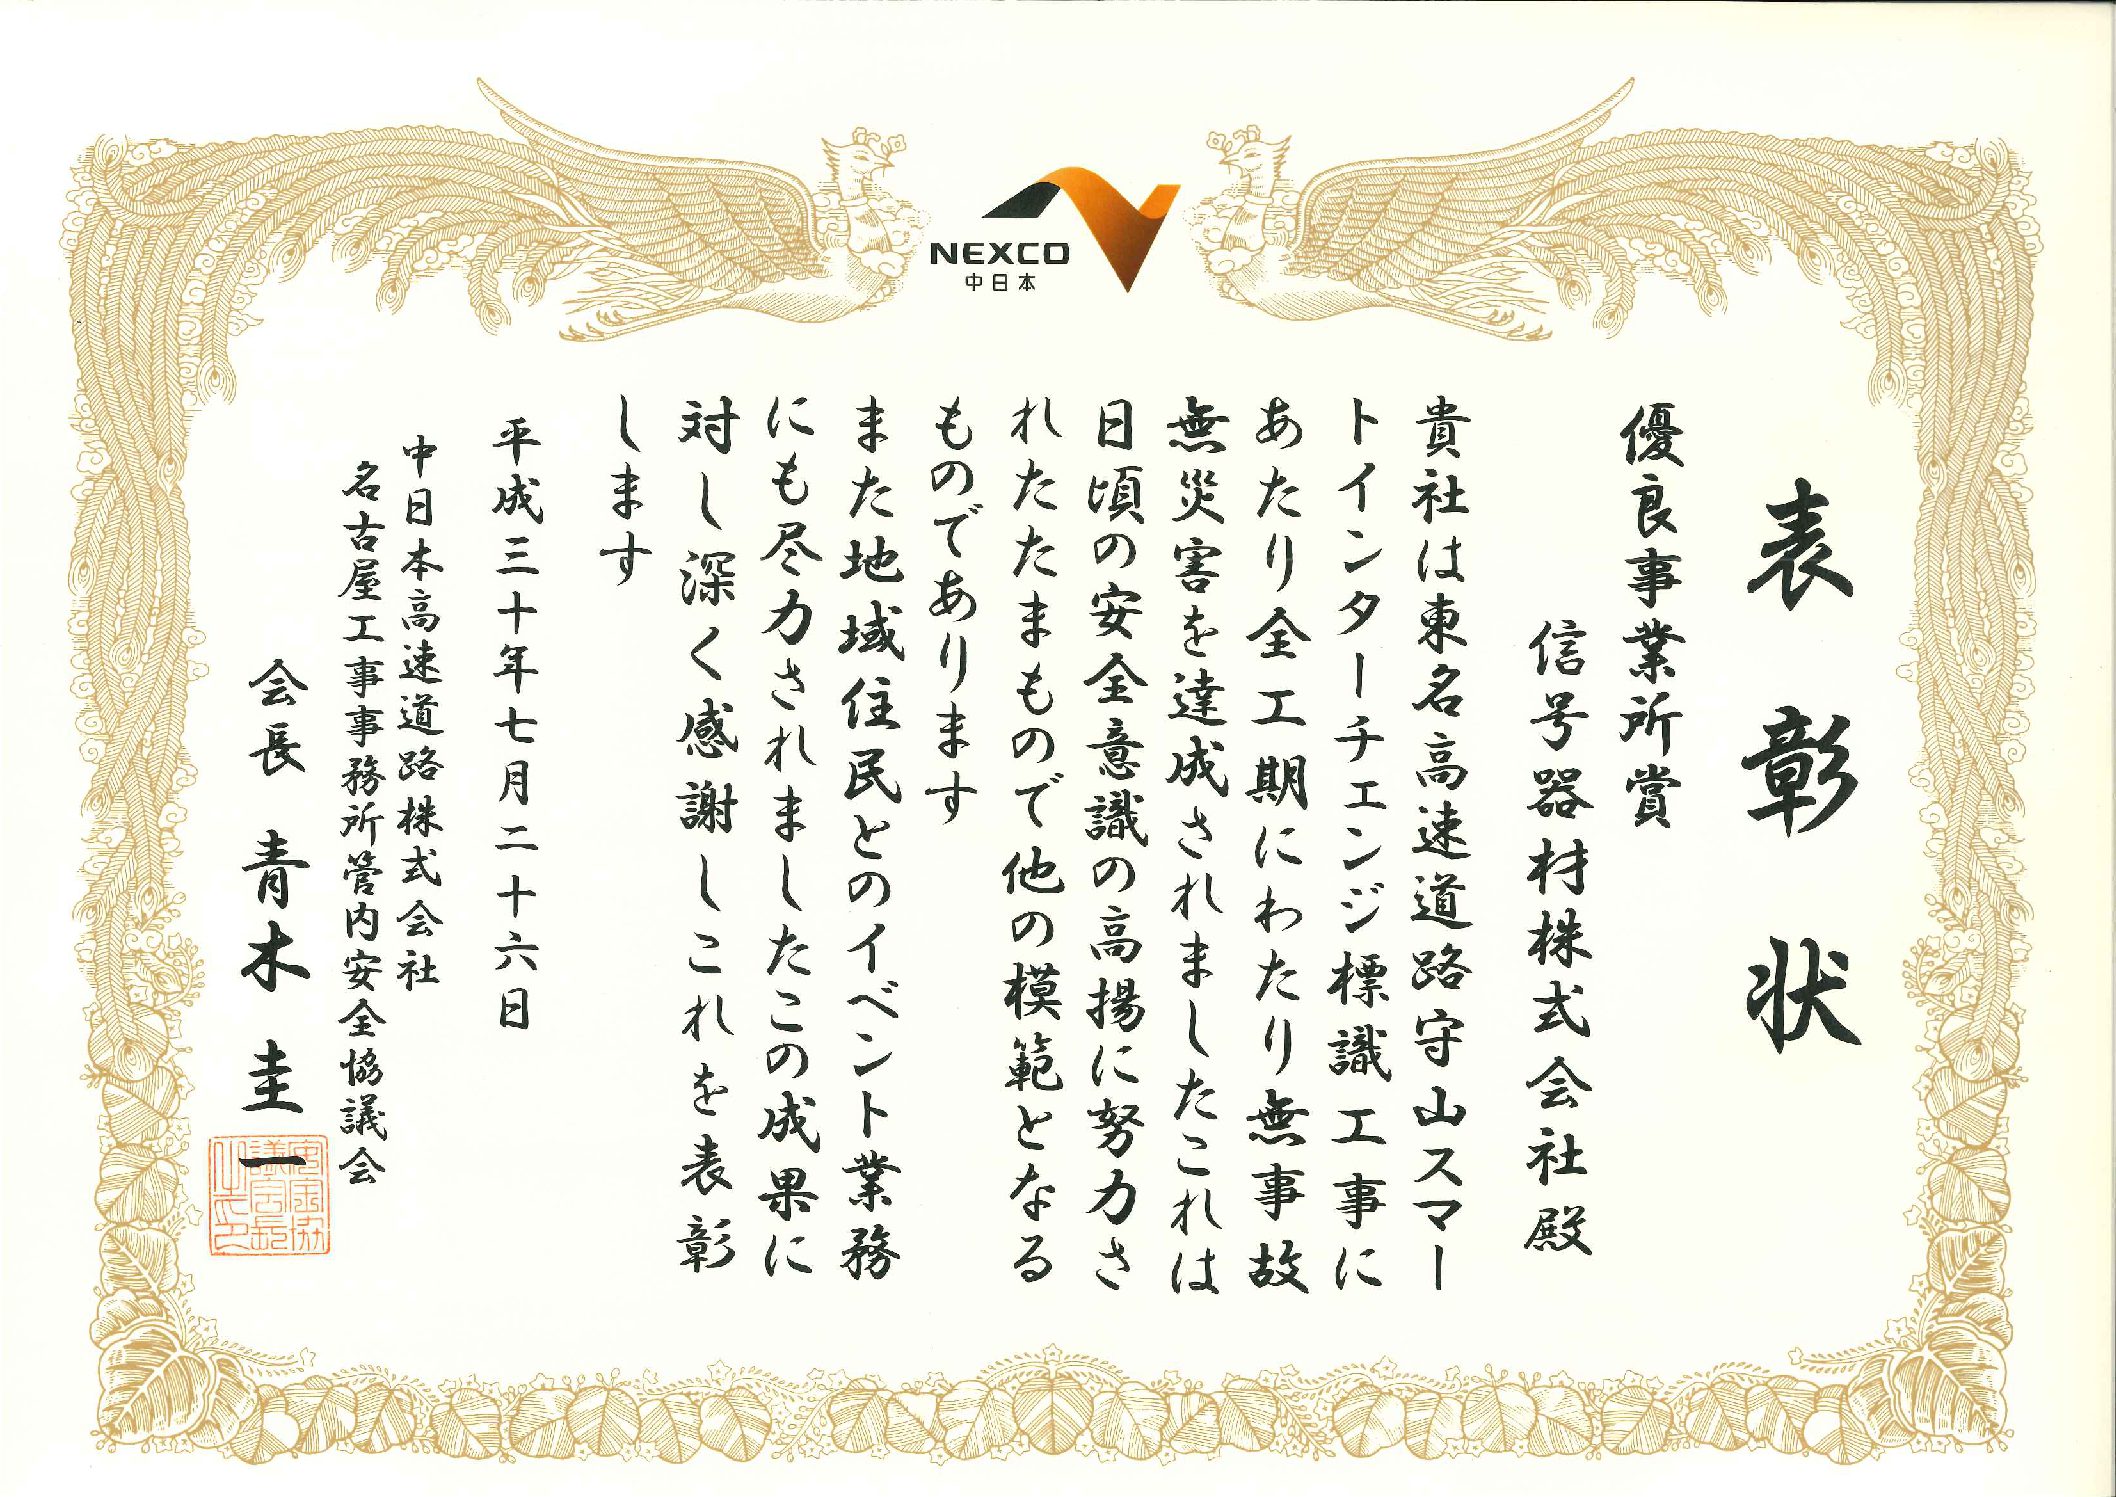 NEXCO
中日本
表彰状
優良事業所賞
信号器材株式会社殿
貴社は東名高速道路守山スマー
トインターチェンジ標識工事に
あたり全工期にわたり無事故
無災害を達成されましたこれは
日頃の安全意識の高揚に努力さ
れたたまもので他の模範となる
ものであります
また地域住民とのイベント業務
にも尽力されましたこの成果に
対し深く感謝しこれを表彰
します
平成三十年七月二十六日
中日本高速道路株式会社
名古屋工事事務所管内安全協議会
会長 青木圭一
安全協
議会長
之印